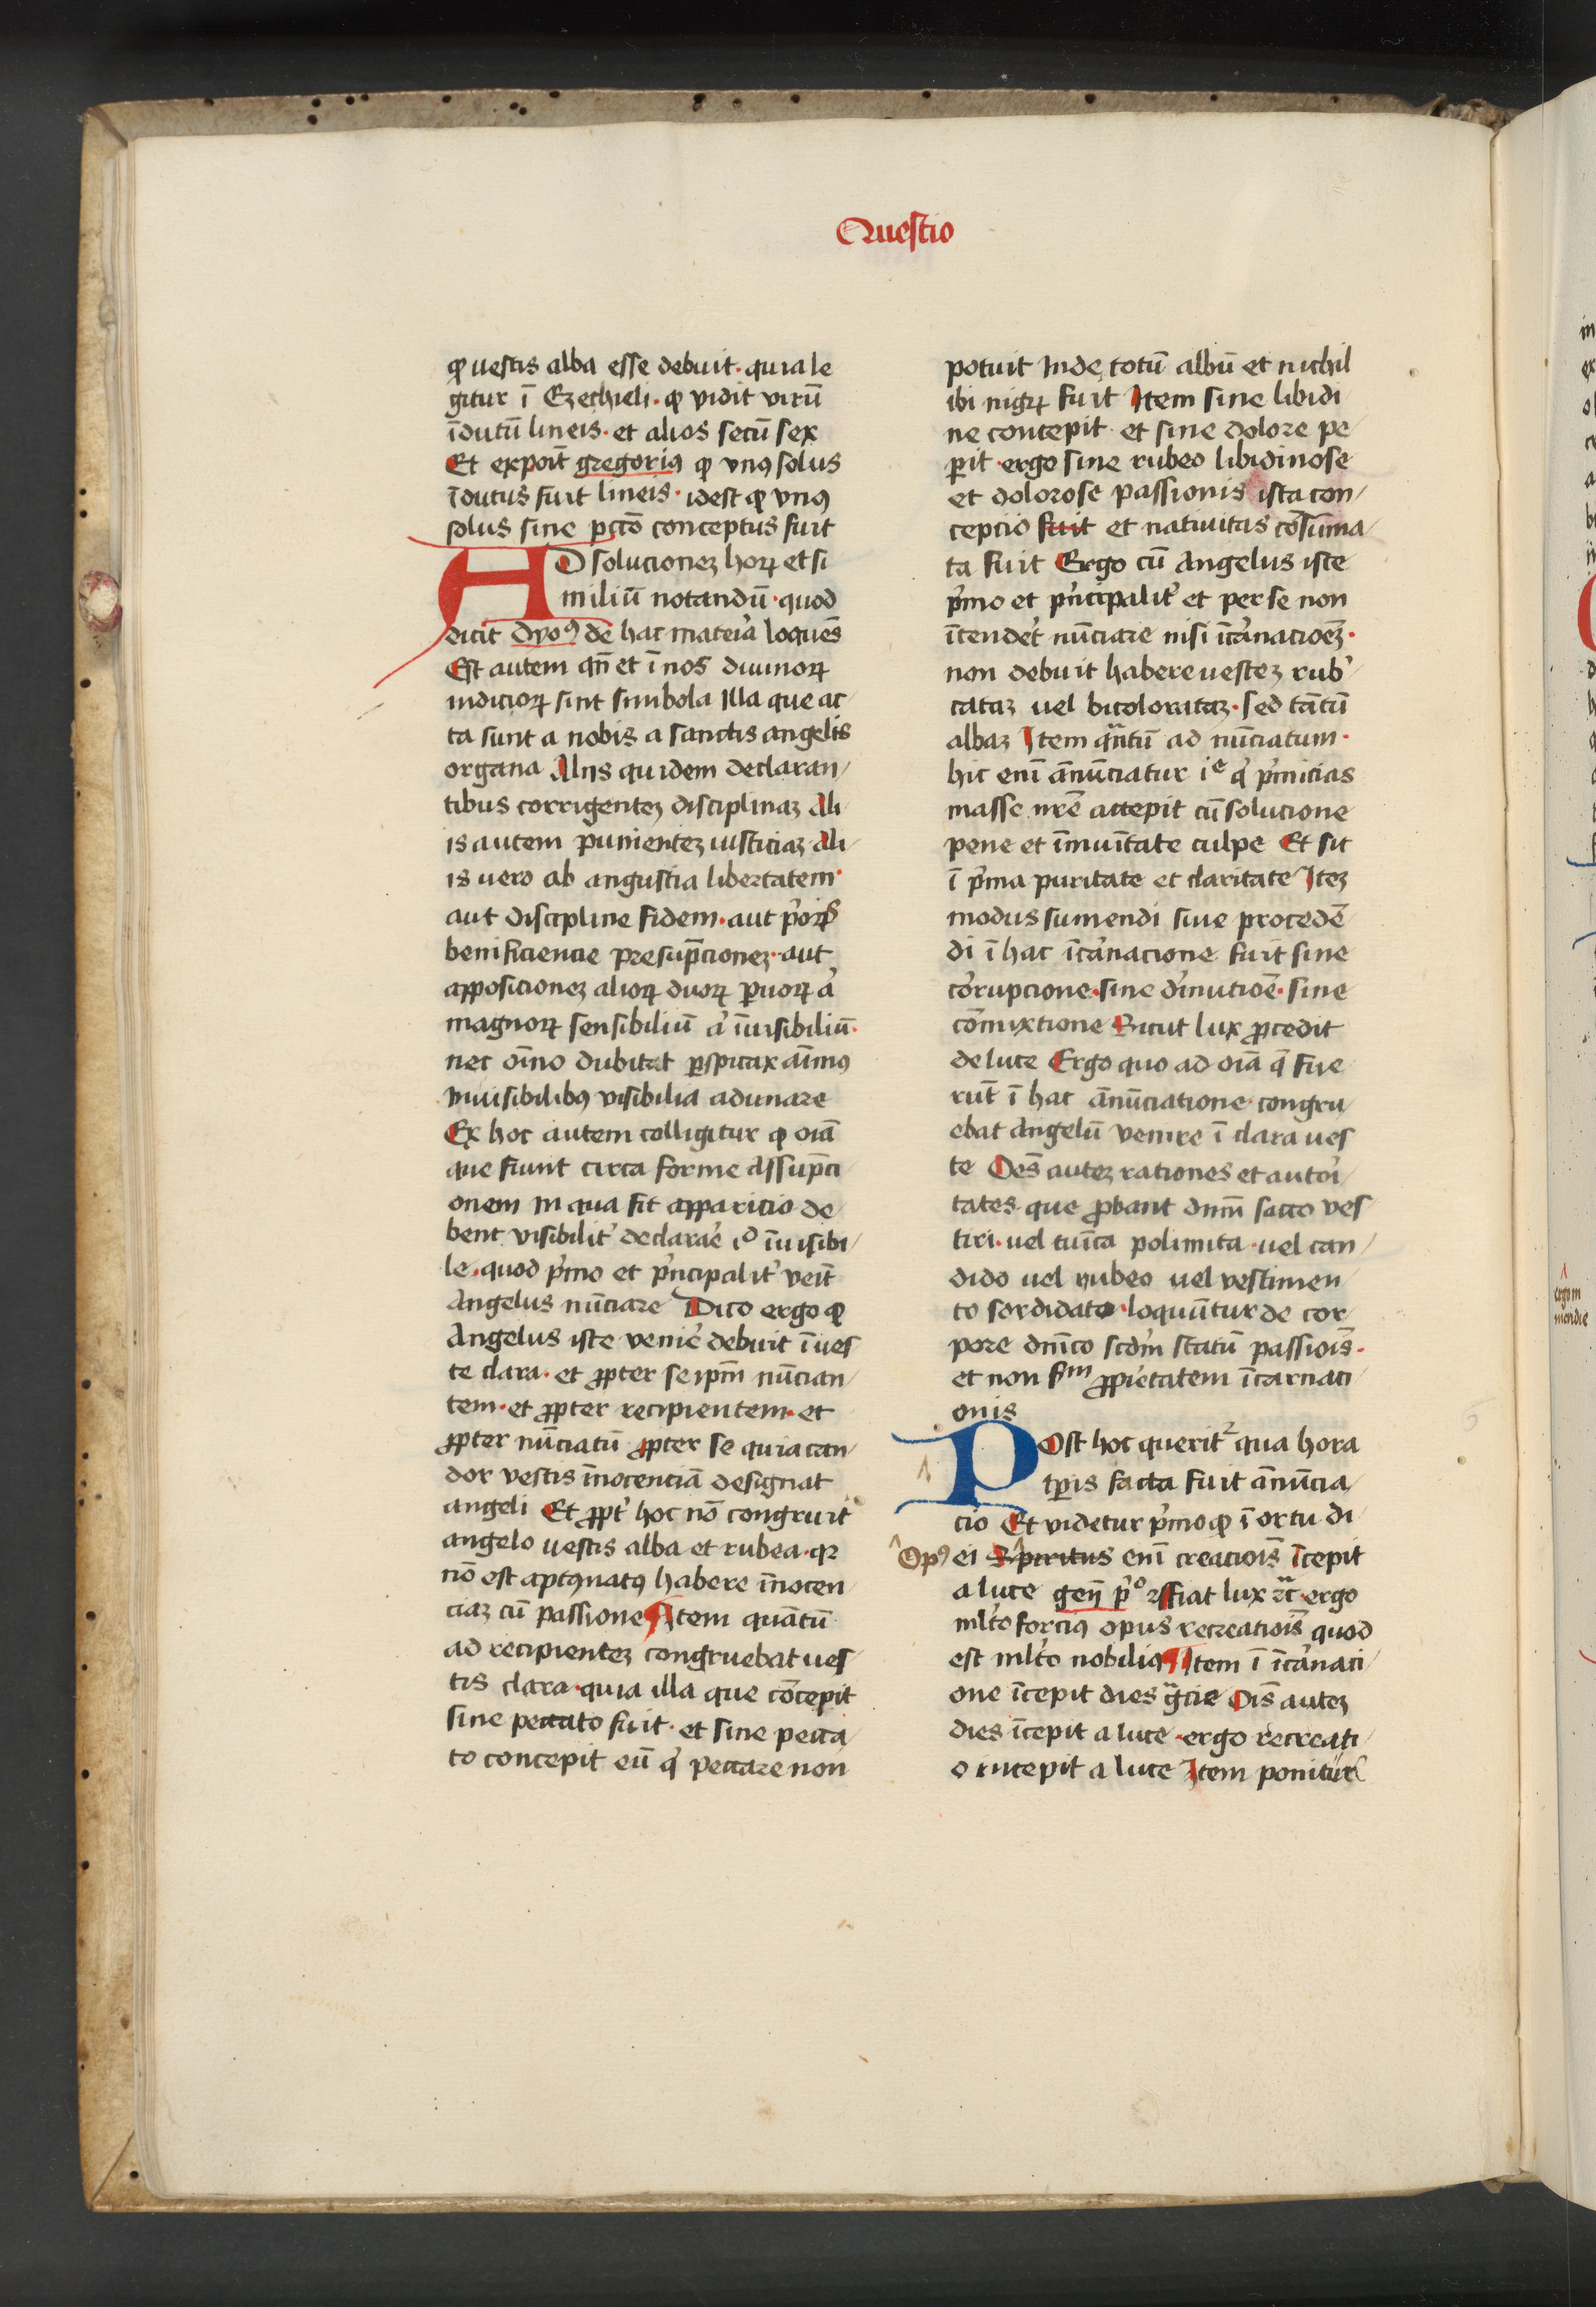 Questio
ꝙ uestis alba esse debuit · quia le
gitur ī Ezechieli · ꝙ vidit virū
īdutū lineis · et alios secū sex
Et expoīt gregoriꝰ ꝙ vnꝰ solus
īdutus fuit lineis · idest ꝙ vnꝰ
solus sine pctō conceptus fuit
AD solucioneꝫ hoꝝ et si
miliū notandū · quod
dicit dyoꝰ de hac mateīa loquēs
Est autem qn̄ et ī nos diuinoꝝ
indicioꝝ sint simbola Illa que ac
ta sunt a nobis a sanctis angelis
organa Aliis quidem declaran
tibus corrigenteꝫ disciplinaꝫ Ali
is autem punienteꝫ iusticiaꝫ Ali
is uero ab angustia libertatem
aut discipline fidem · aut p̄oꝝ
benificiencie presūpcioneꝫ · aut
apposicioneꝫ alioꝝ duoꝝ ꝑuoꝝ a͛
magnoꝝ sensibiliū a͛ īuisibiliū ·
nec oīno dubitat ꝑspicax aīmꝰ
inuisibilibꝰ visibilia adunare
Ex hoc autem colligitur ꝙ oīa
que fiunt circa forme assūpci
onem in qua fit apparicio de
bent visibilit͛ declarar͛e iᵈ īuisibi
le · quod p͛mo et p͛ncipalit͛ veīt
Angelus nūciare Dico ergo ꝙ
Angelus iste venir͛e debuit ī ues
te clara · et ꝓpter seipm̄ nūcian
tem · et ꝓpter recipientem · et
ꝓpter nūciatū ꝓpter se quia can
dor vestis īnocenciā designat
angeli Et ꝓpt͛ hoc nō congruit
angelo uestis alba et rubea · qꝛ
nō est aptꝰ natꝰ habere īnocen
ciaꝫ cū passione Item quātū
ad recipienteꝫ congruebat ues
tis clara · quia illa que cōcepit
sine peccato fuit · et sine pecca
to concepit eū q͛ peccare non
potuit Inde totū albū et nichil
ibi nigꝝ fuit Item sine libidi
ne concepit et sine dolore pe
ꝑit · ergo sine rubeo libidinose
et dolorose passionis ista con
cepcio fuit et natiuitas cōsūma
ta fuit Ergo cū Angelus iste
p͛mo et p͛ncipalit͛ et per se non
ītender͛et nūciare nisi īca͛nacioēꝫ ·
non debuit habere uesteꝫ rub͛
cataꝫ uel bicolorataꝫ · sed tātū
albaꝫ Item qᵃntū ad nūciatum ·
hic enī ānūciatur iᵉ q͛ p͛micias
masse nr̄e accepit cū solucione
pene et īmuītate culpe Et sit
ī p͛ma puritate et claritate Iteꝫ
modus sumendi siue procedē
di ī hac īca͛nacione fuit sine
corrupcione · sine d͛inutiōe · sine
cōmixtione Sicut lux ꝓcedit
de luce Ergo quo ad oīa q̄ fue
rūt ī hac ānūciatione congru
ebat Angelū venire ī clara ues
te Oēs auteꝫ rationes et autoī
tates que ꝓbant dnm̄ sacco ves
tiri · uel tuīca polimita · uel can
dido uel rubeo uel vestimen
to sordidato · loquūtur de cor
pore dnīco scd̄m statū passioīs ·
et non sᵐ ꝓpietatem īcarnaci
onis
POst hoc querit᷑ qua hora
tꝑis facta fuit ānūcia
cio Et videtur p͛mo ꝙ ī ortu di
Opꝰ
ei Spiritus enī creacioīs īcepit
a luce geñ p͛º Fiat lux ⁊c̄ · ergo
ml̄to forciꝰ opus recreatioīs quod
est ml̄to nobiliꝰ Item ī īca͛naci
one īcepit dies gᵃcie Oīs auteꝫ
dies īcepit a luce · ergo recreati
o incepit a luce Item ponitur
ergo in
mendie